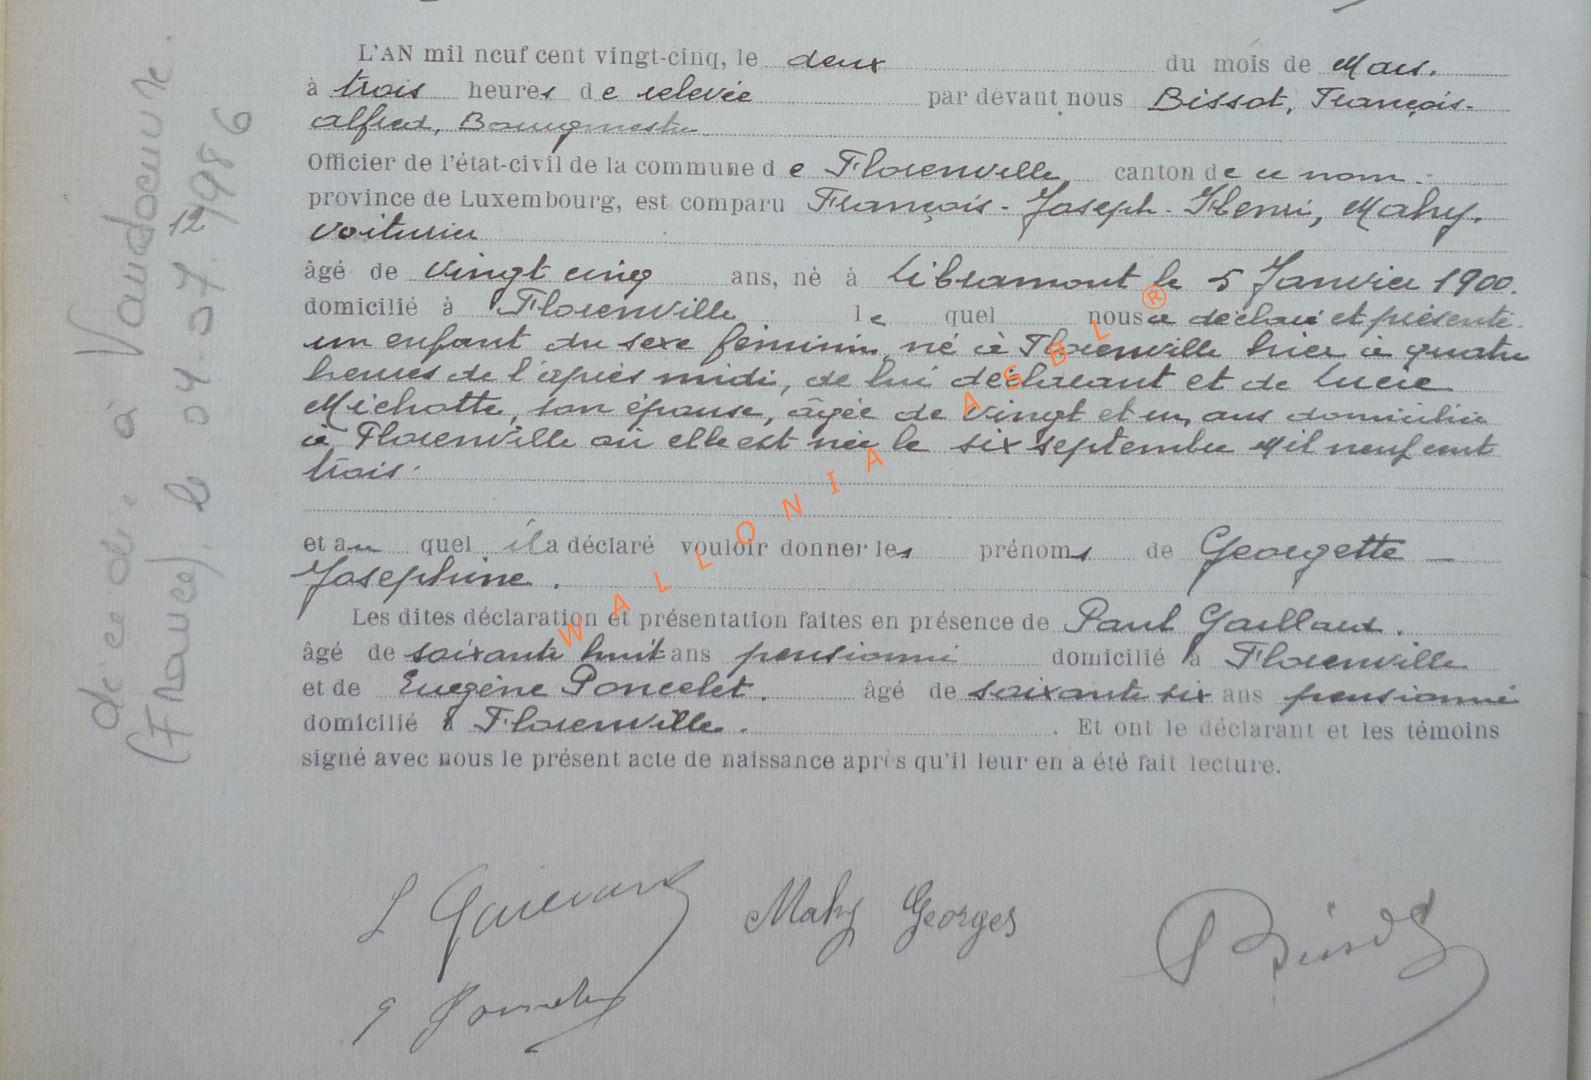 L'AN mil neuf cent vingt-cinq, le deux du mois de Mars.
à trois heures de relevée par devant nous Bissot, François-
Alfred, Bourgmestre
Officier de l'état-civil de la commune de Florenville canton de ce nom
province de Luxembourg, est comparu François-Joseph-Henri, Mahy.
voiturier
âgé de vingt cinq ans, né à Libramont le 5 Janvier 1900.
domicilié à Florenville lequel nous a déclaré et présenté
un enfant du sexe féminin, né à Florenville hier à quatre
heures de l'après midi, de lui déclarant et de Lucie
Michotte, son épouse, âgée de vingt et un ans domiciliée
à Florenville où elle est née le six septembre Mil neuf cent
trois.
et au quel il a déclaré vouloir donner les prénoms de Georgette -
Josephine.
Les dites déclaration et présentation faites en présence de Paul Gaillard.
âgé de soixante huit ans pensionné domicilié à Florenville
et de Eugène Poncelet. âgé de soixante six ans pensionné
domicilié à Florenville. Et ont le déclarant et les témoins
signé avec nous le présent acte de naissance après qu'il leur en a été fait lecture.
Mahy Georges
décédée à Vandoeuvre
(France), le 04-07-1986
12
WALLONIA ASBL ®